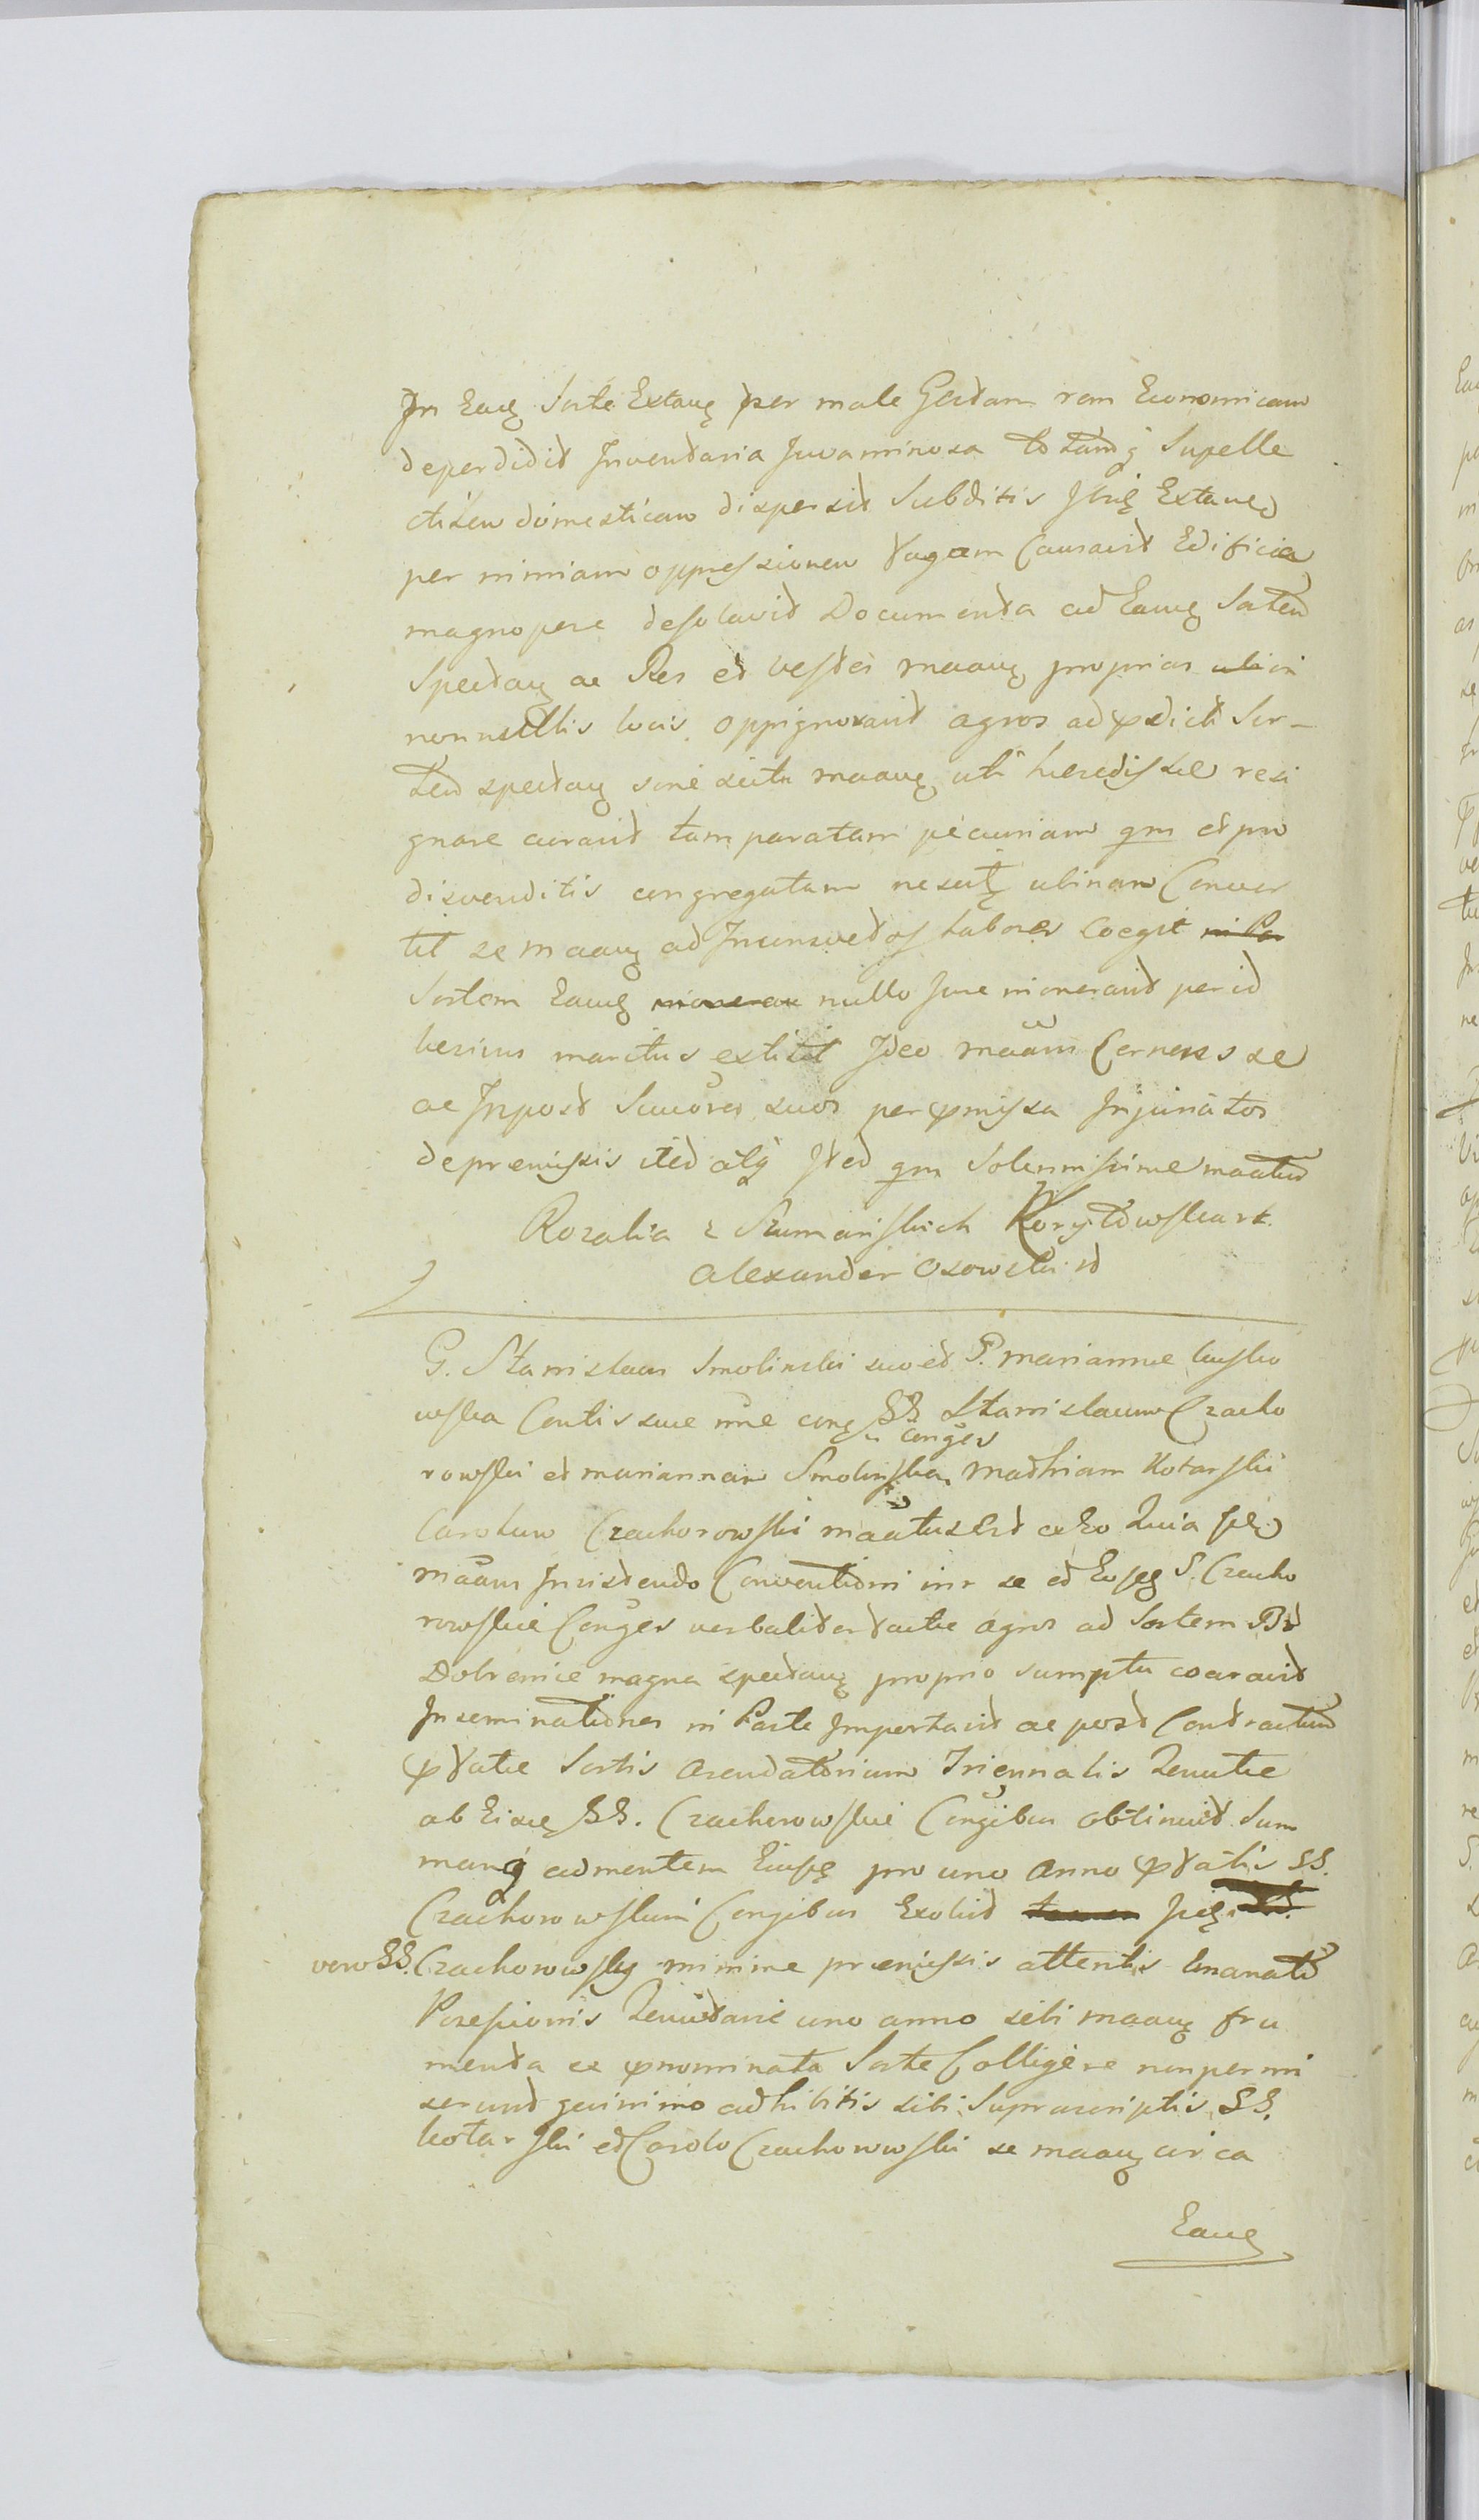 In Eaꝗ Sorte Extanꝗ per male Gestam rem Economicam
deperdidit Inventaria Juvaminosa totamq̃ Supelle
ctilem domesticam dispersit Subditis Ibiꝗ Extanten
per nimiam oppressionem fugam Causavit Edificia
magnopere desolavit Documenta ad Eamꝗ Sortem
Spectanꝗ ac Res et vestes maanꝗ proprias in
nonnullis locis oppignoravit agros ad pdicta Sor-
tem spectanꝗ sine scitu maanꝗ uti heredissæ resi
gnare curavit tam paratam pecuniam qm et pro
disvenditis congregatam nescitꝗ ubinam Conver
tit se maanꝗ ad Inconsvetos labores Coegit
Sortem Eamꝗ nullo Jure inoneravit per id
lesivus maritus extitit Ideo maans Cernens se
ac Inpost Succores suos per pmissa Injuriatos
de præmissis item atq̃ item qm Solennissime maatur
Rozalia z Szumanskich Korytowska rt
Alexander Osowski st
G. Stanislaus Smolinski suo et G. Mariannæ
wska Contis suæ nne conꝗ SS Stanislaum Czacho
rowski et Mariannam Smolinska conges Mathiam Kotarski
Carolum Czachorowski maatus est ex eo Quia
maans Insistendo Conventioni inr se et Eosꝗ S. Czacho
rowskie Conges verbaliter factæ agros ad Sortem
Dobrenice magna spectanꝗ proprio sumptu coaravit
Inseminationes in Parte Importavit ac post Contractum
pfatæ Sortis Arendatorium Triennalis Tenutæ
ab Eisꝗ SS. Czachorowskie Congibus obtinuit Sum
mamq̃ ad mentem Eiusꝗ pro uno Anno pfatis SS.
Czachorowskim Congibus Exolvit
vero SS. Czachorowscy minime præmissis attentis Emanato
Posessionis Tenutariæ uno anno sibi maanꝗ fru
menta ex pnominata Sorte Colligere non permi
serunt quinimo adhibitis sibi Suprascriptis SS.
Kotarski et Carolo Czachorowski se maanꝗ circa
Eamꝗ